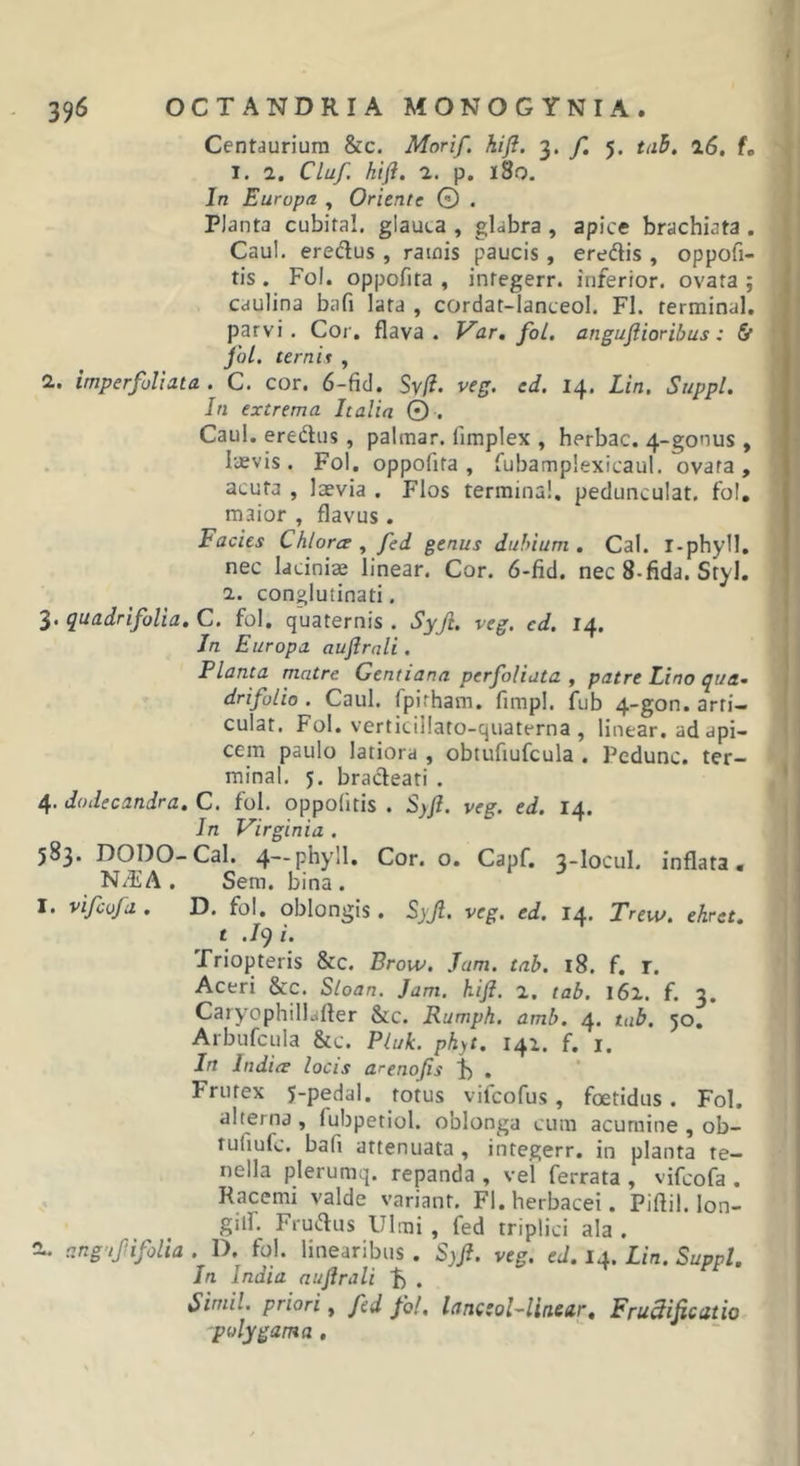 396 OCTANDRIA MONOGYNIA.
Centaurium &c. Morif. hift. 3. f. 5. tab. 26. f.
1. 2. Cluf. hift. 2. p. 180.
In Europa , Oriente ☉ .
Planta cubital. glauca , glabra , apice brachiata .
Caul. erectus , ramis paucis , erectis , oppofi-
tis . Fol. oppofita , integerr. inferior. ovata ;
caulina bafi lata , cordat-lanceol. Fl. terminal.
parvi . Cor. flava . Var. fol. anguftioribus : &
fol. ternis ,
2. imperfoliata . C. cor. 6-fid. Syft. veg. ed. 14. Lin. Suppl.
In extrema Italia ☉ .
Caul. erectus , palmar. fimplex , herbac. 4-gonus ,
lævis . Fol. oppofita , fubamplexicaul. ovata ,
acuta , lævia . Flos terminal. pedunculat. fol.
maior , flavus .
Facies Chloræ , fed genus dubium . Cal. 1-phyll.
nec laciniæ linear. Cor. 6-fid. nec 8-fida. Styl.
2. conglutinati .
3. quadrifolia. C. fol. quaternis . Syft. veg. ed. 14.
In Europa auftrali .
Planta matre Gentiana perfoliata , patre Lino qua-
drifolio . Caul. fpitham. fimpl. fub 4-gon. arti-
culat. Fol. verticillato-quaterna , linear. ad api-
cem paulo latiora , obtufiufcula . Pedunc. ter-
minal. 5. bracteati .
4. dodecandra. C. fol. oppofitis . Syft. veg. ed. 14.
In Virginia .
583. DODO- Cal. 4--phyll. Cor. 0. Capf. 3-locul. inflata .
NÆA . Sem. bina .
1. vifcofa . D. fol. oblongis . Syft. veg. ed. 14. Trew. ehret.
t .19 i.
Triopteris &c. Brow. Jam. tab. 18. f. 1.
Aceri &c. Sloan. Jam. hift. 2. tab. 162. f. 3.
Caryophillafter &c. Rumph. amb. 4. tab. 50.
Arbufcula &c. Pluk. phyt. 142. f. 1.
In Indiæ locis arenofis ♄ .
Frutex 5-pedal. totus vifcofus , fœtidus . Fol.
alterna , fubpetiol. oblonga cum acumine , ob-
tufiufc. bafi attenuata , integerr. in planta te-
nella plerumq. repanda , vel ferrata , vifcofa .
Racemi valde variant. Fl. herbacei . Piftil. lon-
giff. Fructus Ulmi , fed triplici ala .
2. anguftifolia . D. fol. linearibus . Syft. veg. ed. 14. Lin. Suppl.
In India auftrali ♄ .
Simil. priori , fed fol. lanceol-linear. Fructificatio
polygama .